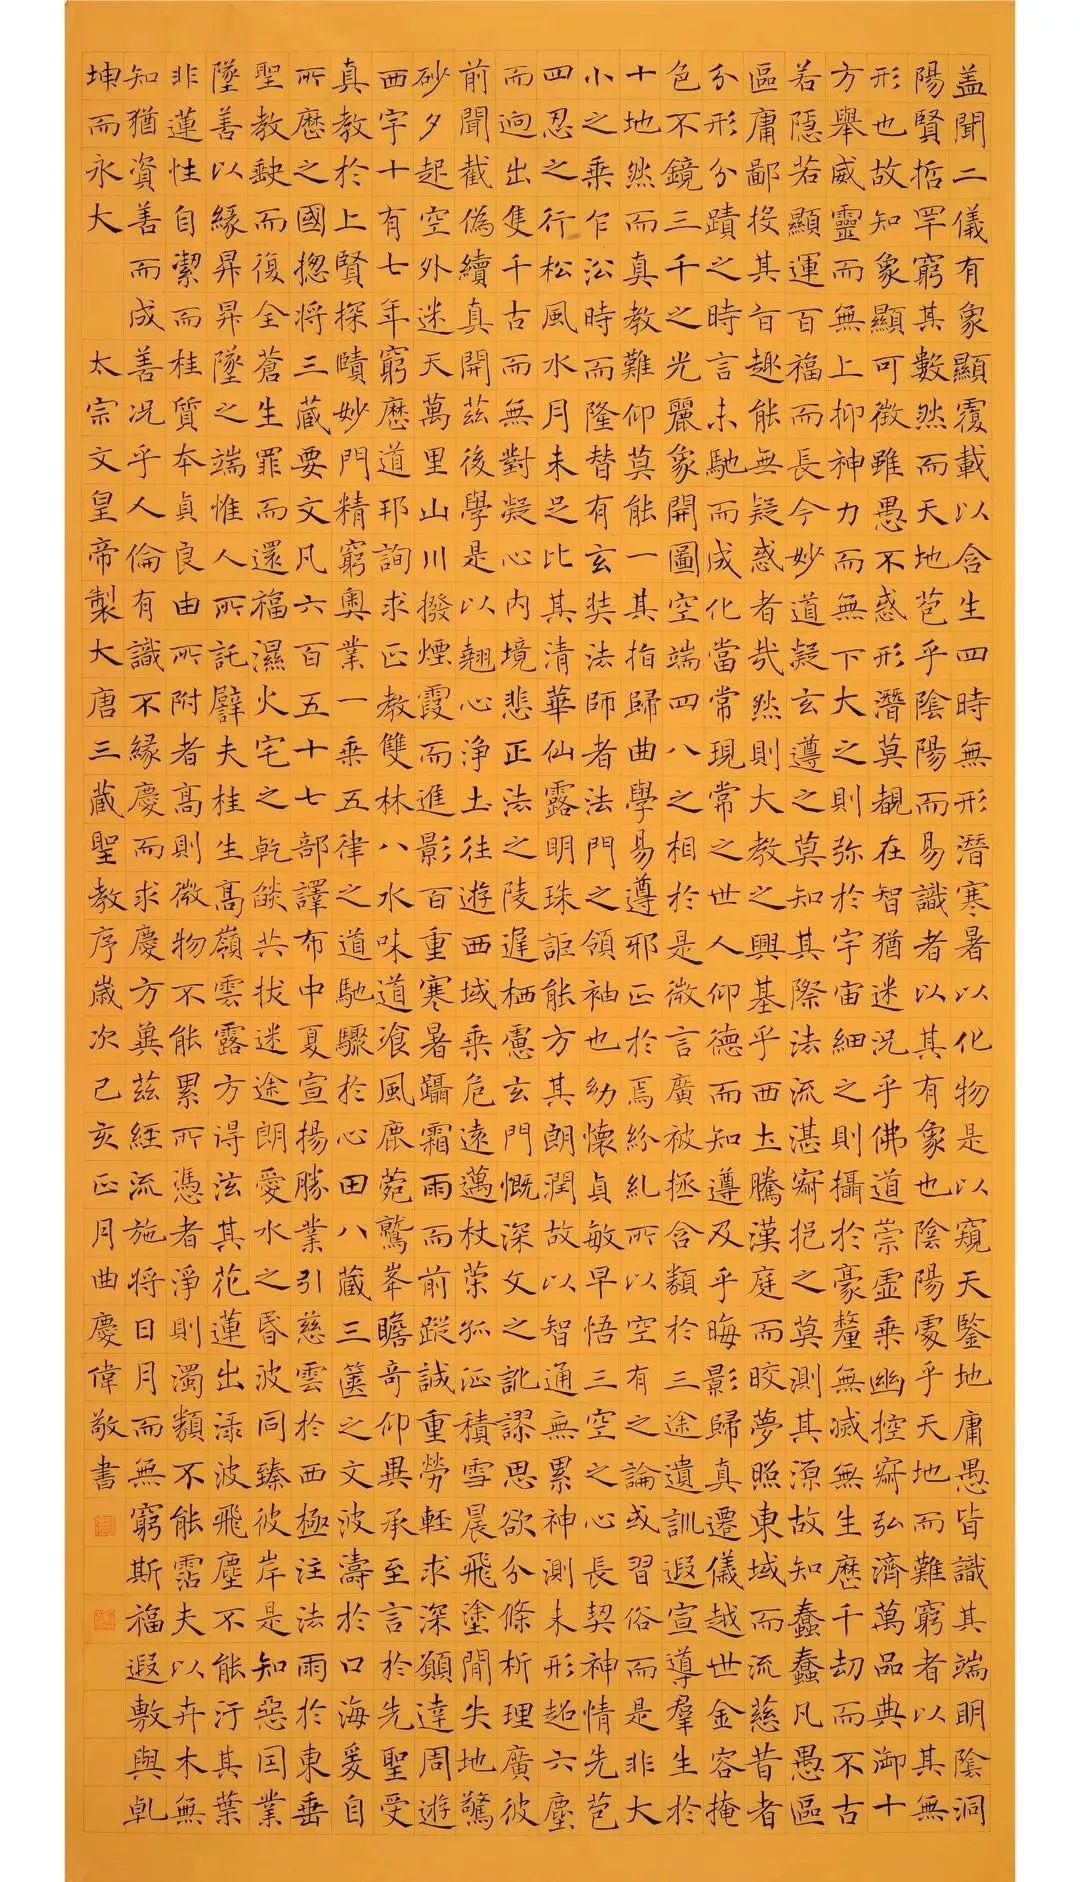 蓋聞二儀有象顯覆載以含生四時無形潛寒暑以化物是以窺天鑒地庸愚皆識其端明陰洞
陽賢哲罕窮其數然而天地苞乎陰陽而易識者以其有象也陰陽處乎天地而難窮者以其無
形也故知象顯可徵雖愚不惑形潛莫覩在智猶迷況乎佛道崇虛乘幽控寂弘濟萬品典御十
方舉威靈而無上抑神力而無下大之則弥於宇宙細之則攝於豪釐無滅無生歷千劫而不古
若隱若顯運百福而長今妙道凝玄遵之莫知其際法流湛寂挹之莫測其源故知蠢蠢凡愚區
區庸鄙投其旨趣能無疑惑者哉然則大教之興基乎西土騰漢庭而皎夢照東域而流慈昔者
分形分蹟之時言未馳而成化當常現常之世人仰德而知遵及乎晦影歸真遷儀越世金容掩
色不鏡三千之光麗象開圖空端四八之相於是微言廣被拯含類於三途遺訓遐宣導羣生於
十地然而真教難仰莫能一其指歸曲學易遵邪正於焉紛糺所以空有之論或習俗而是非大
小之乘乍沿時而隆替有玄奘法師者法門之領袖也幼懷貞敏早悟三空之心長契神情先苞
四忍之行松風水月未足比其清華仙露明珠詎能方其朗潤故以智通無累神測未形超六塵
而迥出隻千古而無對凝心內境悲正法之陵遲栖慮玄門慨深文之訛謬思欲分條析理廣彼
前聞截偽續真開茲後學是以翹心淨土往遊西域乘危遠邁杖策孤征積雪晨飛塗閒失地驚
砂夕起空外迷天萬里山川撥煙霞而進影百重寒暑躡霜雨而前蹤誠重勞輕求深願達周遊
西宇十有七年窮歷道邦詢求正教雙林八水味道飡風鹿菀鷲峯瞻奇仰異承至言於先聖受
真教於上賢探賾妙門精窮奧業一乘五律之道馳驟於心田八藏三篋之文波濤於口海爰自
所歷之國揔將三藏要文凡六百五十七部譯布中夏宣揚勝業引慈雲於西極注法雨於東垂
聖教缺而復全蒼生罪而還福濕火宅之乾燄共拔迷途朗愛水之昏波同臻彼岸是知惡因業
墜善以緣昇昇墜之端惟人所託譬夫桂生高嶺雲露方得泫其花蓮出淥波飛塵不能汙其葉
非蓮性自潔而桂質本貞良由所附者高則微物不能累所憑者淨則濁類不能霑夫以卉木無
知猶資善而成善況乎人倫有識不緣慶而求慶方冀茲經流施將日月而無窮斯福遐敷與乾
坤而永大 太宗文皇帝製大唐三藏聖教序歲次己亥正月曲慶偉敬書